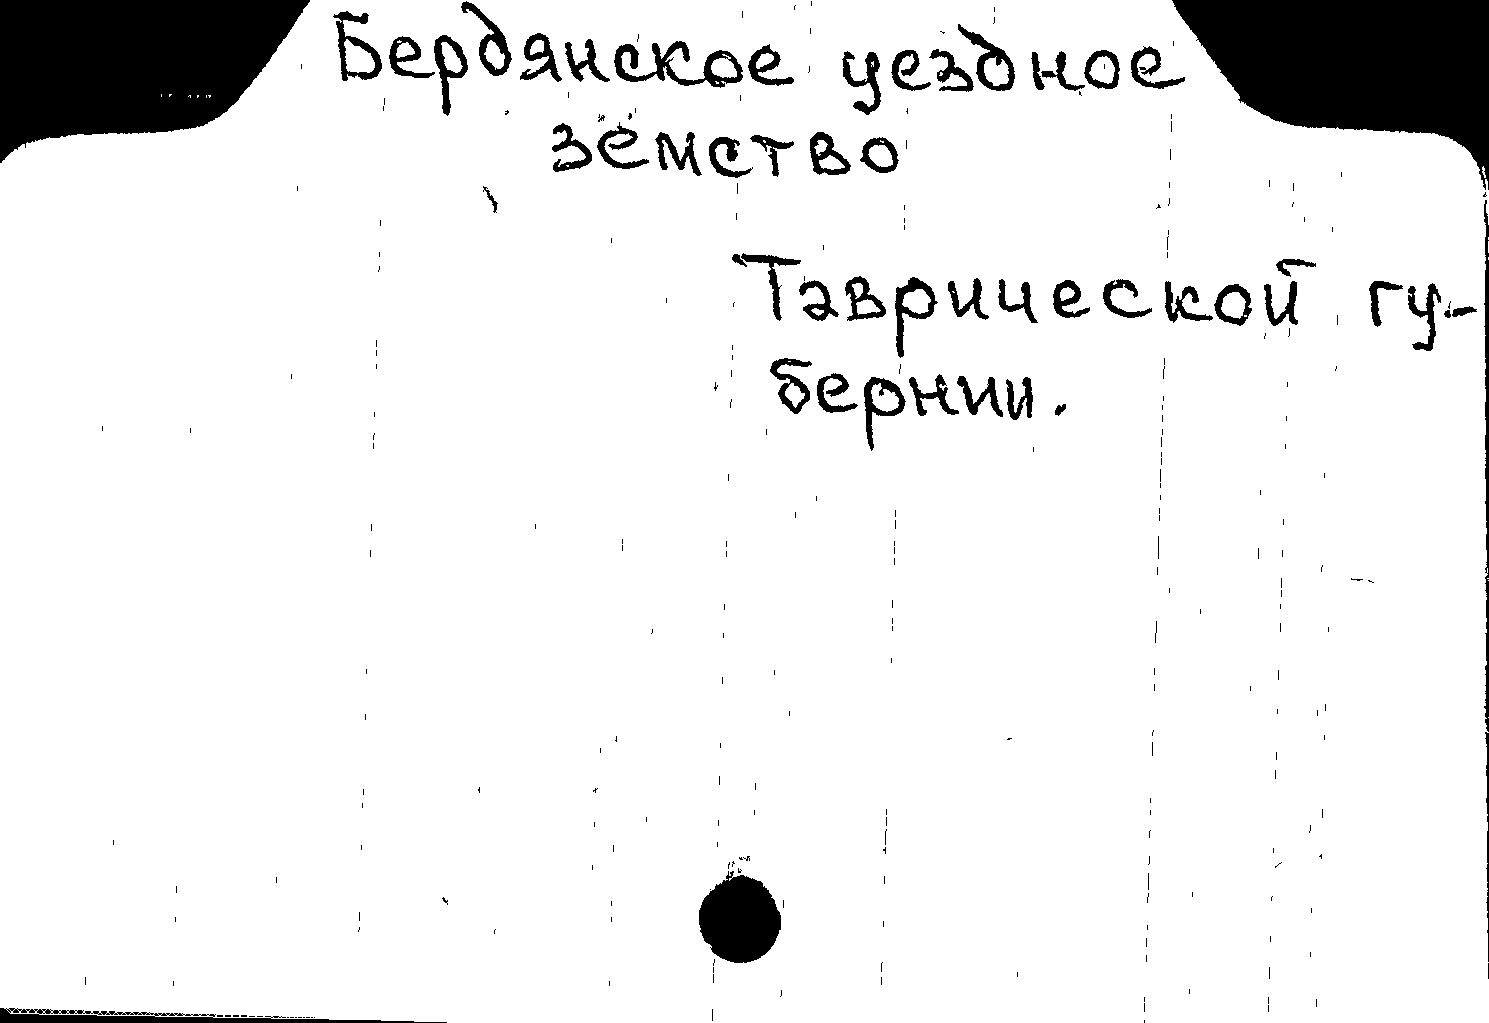 Бердянское уездное
земство
Таврической гу-
бернии.